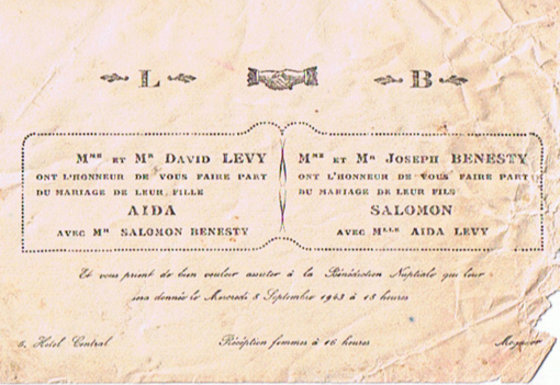 L B
MME ET MR DAVID LEVY
ONT L'HONNEUR DE VOUS FAIRE PART
DU MARIAGE DE LEUR FILLE
AIDA
AVEC MR SALOMON BENESTY
MME ET MR JOSEPH BENESTY
ONT L'HONNEUR DE VOUS FAIRE PART
DU MARIAGE DE LEUR FILS
SALOMON
AVEC MLLE AIDA LEVY
Et vous prient de bien vouloir assister à la Bénédiction Nuptiale qui leur
sera donnée le Mercredi 8 Septembre 1943 à 18 heures
Hôtel Central Réception femmes à 16 heures Mogador